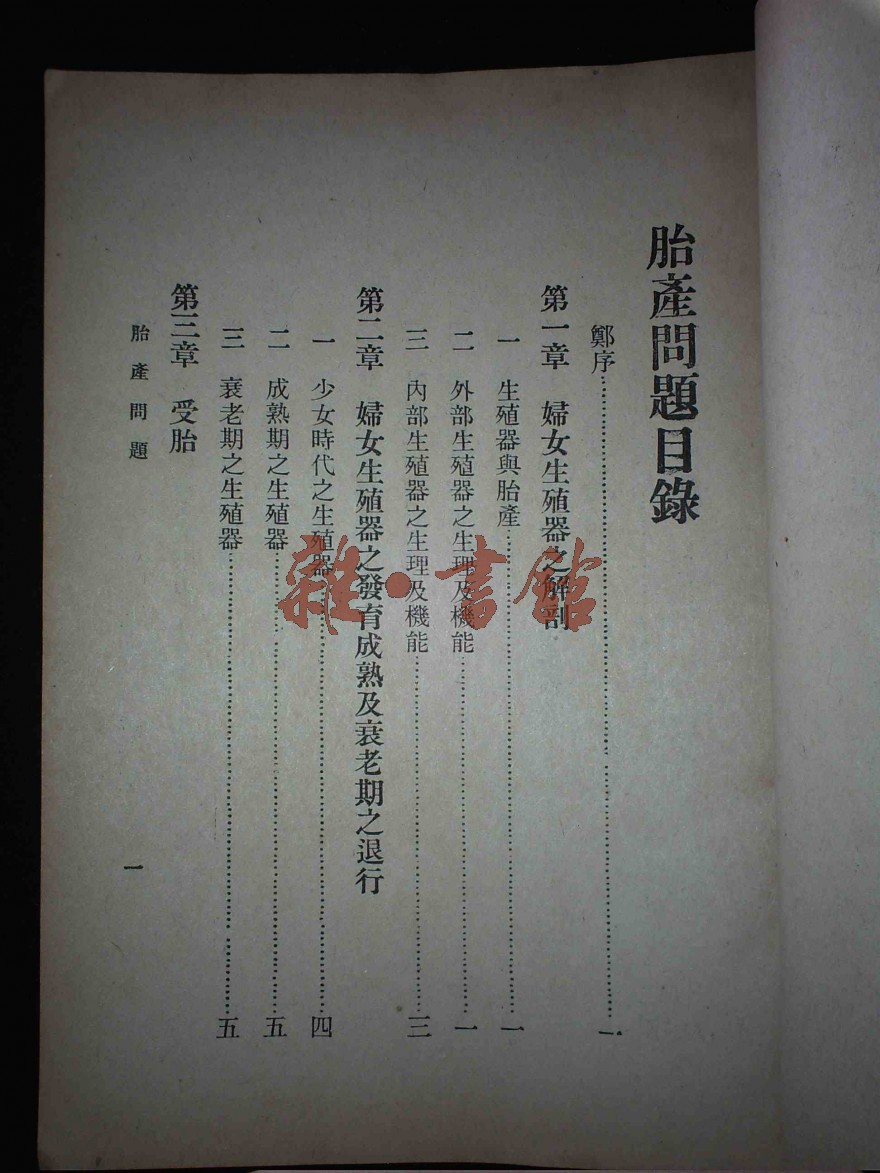 胎產問題目錄
鄭序……一
第一章　婦女生殖器之解剖
一　生殖器與胎產……一
二　外部生殖器之生理及機能……一
三　內部生殖器之生理及機能……三
第二章　婦女生殖器之發育成熟及衰老期之退行
一　少女時代之生殖器……四
二　成熟期之生殖器……五
三　衰老期之生殖器……五
第三章　受胎
胎產問題　一
雜·書館